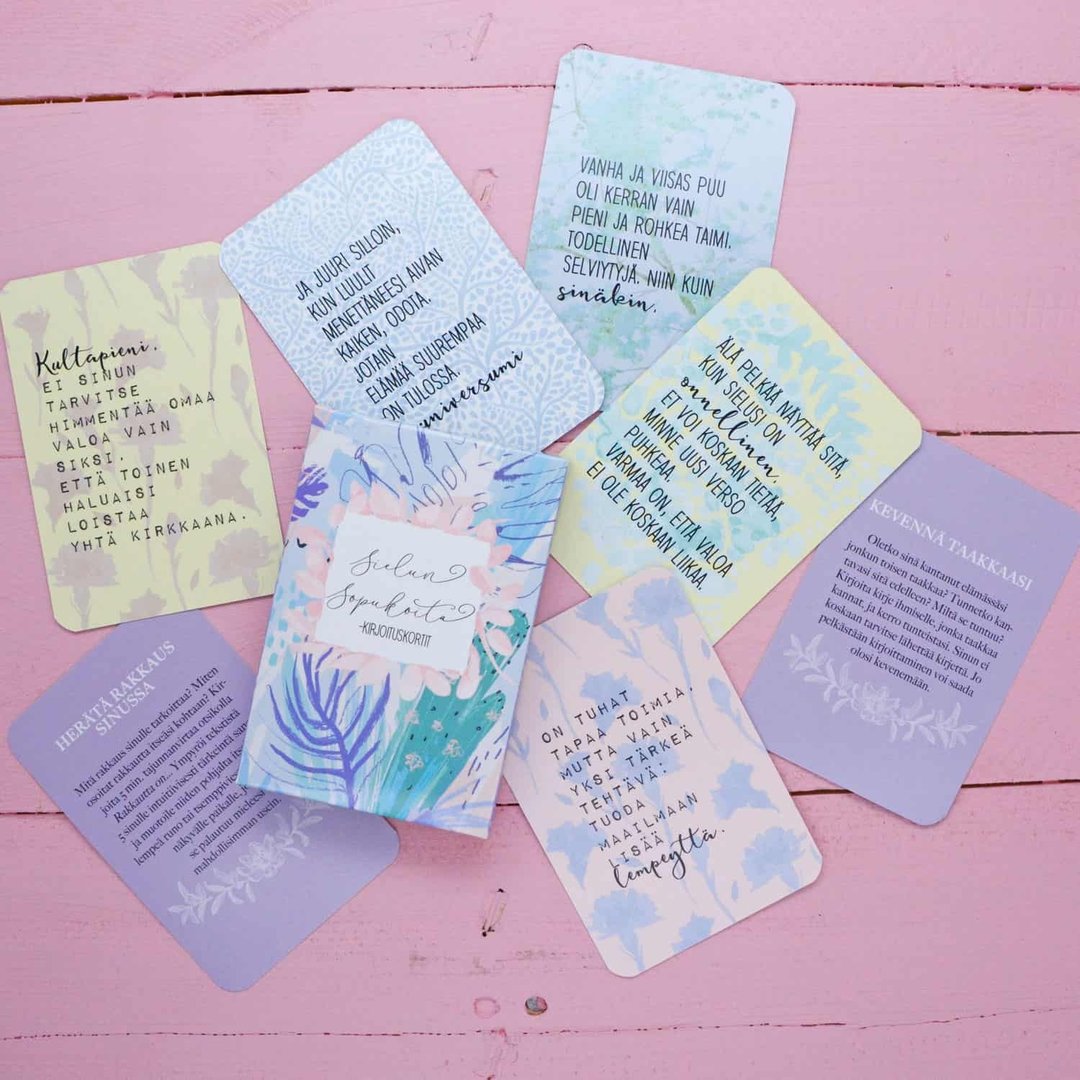 VANHA JA VIISAS PUU
OLI KERRAN VAIN
PIENI JA ROHKEA TAIMI.
TODELLINEN
SELVIYTYJÄ. NIIN KUIN
sinäkin.
JA JUURI SILLOIN,
KUN LUULIT
MENETTÄNEESI AIVAN
KAIKEN, ODOTA.
JOTAIN
ELÄMÄÄ SUUREMPAA
ON TULOSSA.
universumi
Kultapieni.
EI SINUN
TARVITSE
HIMMENTÄÄ OMAA
VALOA VAIN
SIKSI,
ETTÄ TOINEN
HALUAISI
LOISTAA
YHTÄ KIRKKAANA.
ÄLÄ PELKÄÄ NÄYTTÄÄ SITÄ,
KUN SIELUSI ON
onnellinen.
EI VOI KOSKAAN TIETÄÄ,
MINNE UUSI VERSO
PUHKEAA.
VARMAA ON, ETTÄ VALOA
EI OLE KOSKAAN LIIKAA.
Sielun
Sopukoita
-KIRJOITUSKORTIT
KEVENNÄ TAAKKAASI
Oletko sinä kantanut elämässäsi
jonkun toisen taakkaa? Tunnetko kan-
tavasi sitä edelleen? Miltä se tuntuu?
Kirjoita kirje ihmiselle, jonka taakkaa
kannat, ja kerro tunteistasi. Sinun ei
koskaan tarvitse lähettää kirjettä. Jo
pelkästään kirjoittaminen voi saada
olosi kevenemään.
HERÄTÄ RAKKAUS
SINUSSA
Mitä rakkaus sinulle tarkoittaa? Miten
osoitat rakkautta itseäsi kohtaan? Kir-
joita 5 min. tajunnanvirtaa otsikolla
Rakkautta on... Ympyröi tekstistä
5 sinulle intuitiivisesti tärkeintä
ja muotoile niiden pohjalta
lempeä runo tai tsemppi
näkyvälle paikalle,
se palautuu mielees
mahdollisimman usein.
ON TUHAT
TAPAA TOIMIA,
MUTTA VAIN
YKSI TÄRKEÄ
TEHTÄVÄ:
TUODA
MAAILMAAN
LISÄÄ
lempeyttä.